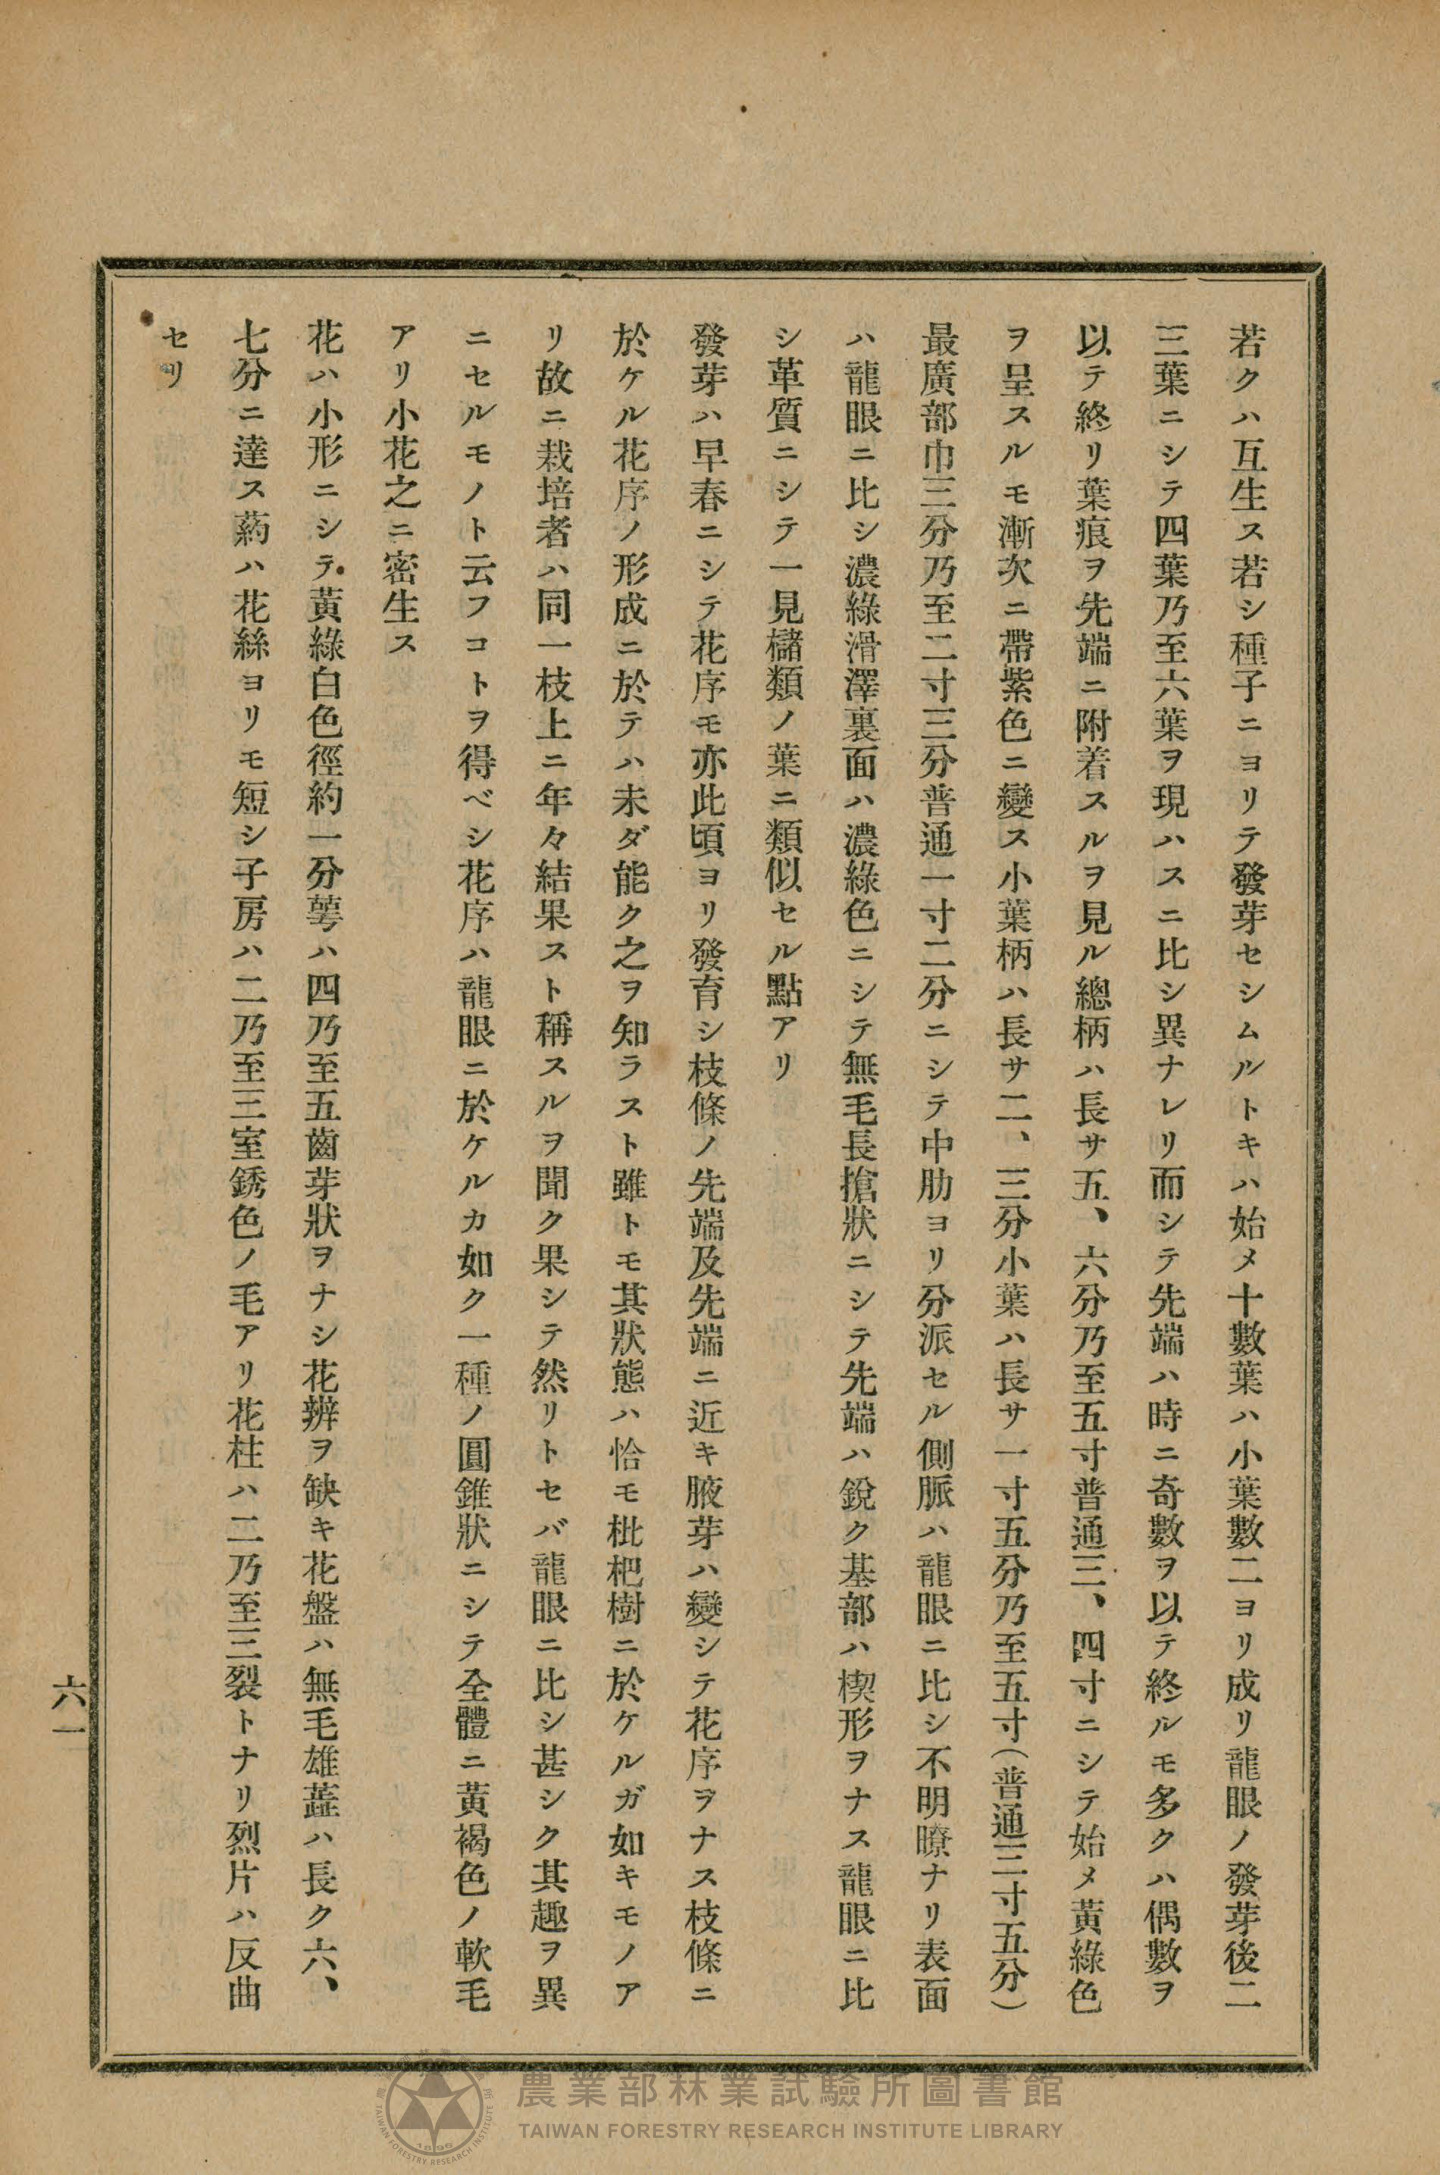 若クハ互生ス若シ種子ニヨリテ發芽セシムルトキハ始メ十數葉ハ小葉數二ヨリ成リ龍眼ノ發芽後二
三葉ニシテ四葉乃至六葉ヲ現ハスニ比シ異ナレリ而シテ先端ハ時ニ奇數ヲ以テ終ルモ多クハ偶數ヲ
以テ終リ葉痕ヲ先端ニ附着スルヲ見ル總柄ハ長サ五、六分乃至五寸普通三、四寸ニシテ始メ黃綠色
ヲ呈スルモ漸次ニ帶紫色ニ變ス小葉柄ハ長サ二、三分小葉ハ長サ一寸五分乃至五寸(普通三寸五分)
最廣部巾三分乃至二寸三分普通一寸二分ニシテ中肋ヨリ分派セル側脈ハ龍眼ニ比シ不明瞭ナリ表面
ハ龍眼ニ比シ濃綠滑澤裏面ハ濃綠色ニシテ無毛長搶狀ニシテ先端ハ銳ク基部ハ楔形ヲナス龍眼ニ比
シ革質ニシテ一見櫧類ノ葉ニ類似セル點アリ
發芽ハ早春ニシテ花序モ亦此頃ヨリ發育シ枝條ノ先端及先端ニ近キ腋芽ハ變シテ花序ヲナス枝條ニ
於ケル花序ノ形成ニ於テハ未ダ能ク之ヲ知ラスト雖トモ其狀態ハ恰モ枇杷樹ニ於ケルガ如キモノア
リ故ニ栽培者ハ同一枝上ニ年々結果スト稱スルヲ聞ク果シテ然リトセバ龍眼ニ比シ甚シク其趣ヲ異
ニセルモノト云フコトヲ得ベシ花序ハ龍眼ニ於ケルカ如ク一種ノ圓錐狀ニシテ全體ニ黃褐色ノ軟毛
アリ小花之ニ密生ス
花ハ小形ニシテ黃綠白色徑約一分萼ハ四乃至五齒芽狀ヲナシ花辨ヲ缺キ花盤ハ無毛雄蕋ハ長ク六、
七分ニ達ス葯ハ花絲ヨリモ短シ子房ハ二乃至三室銹色ノ毛アリ花柱ハ二乃至三裂トナリ烈片ハ反曲
セリ
六一
農業部林業試驗所圖書館
TAIWAN FORESTRY RESEARCH INSTITUTE LIBRARY